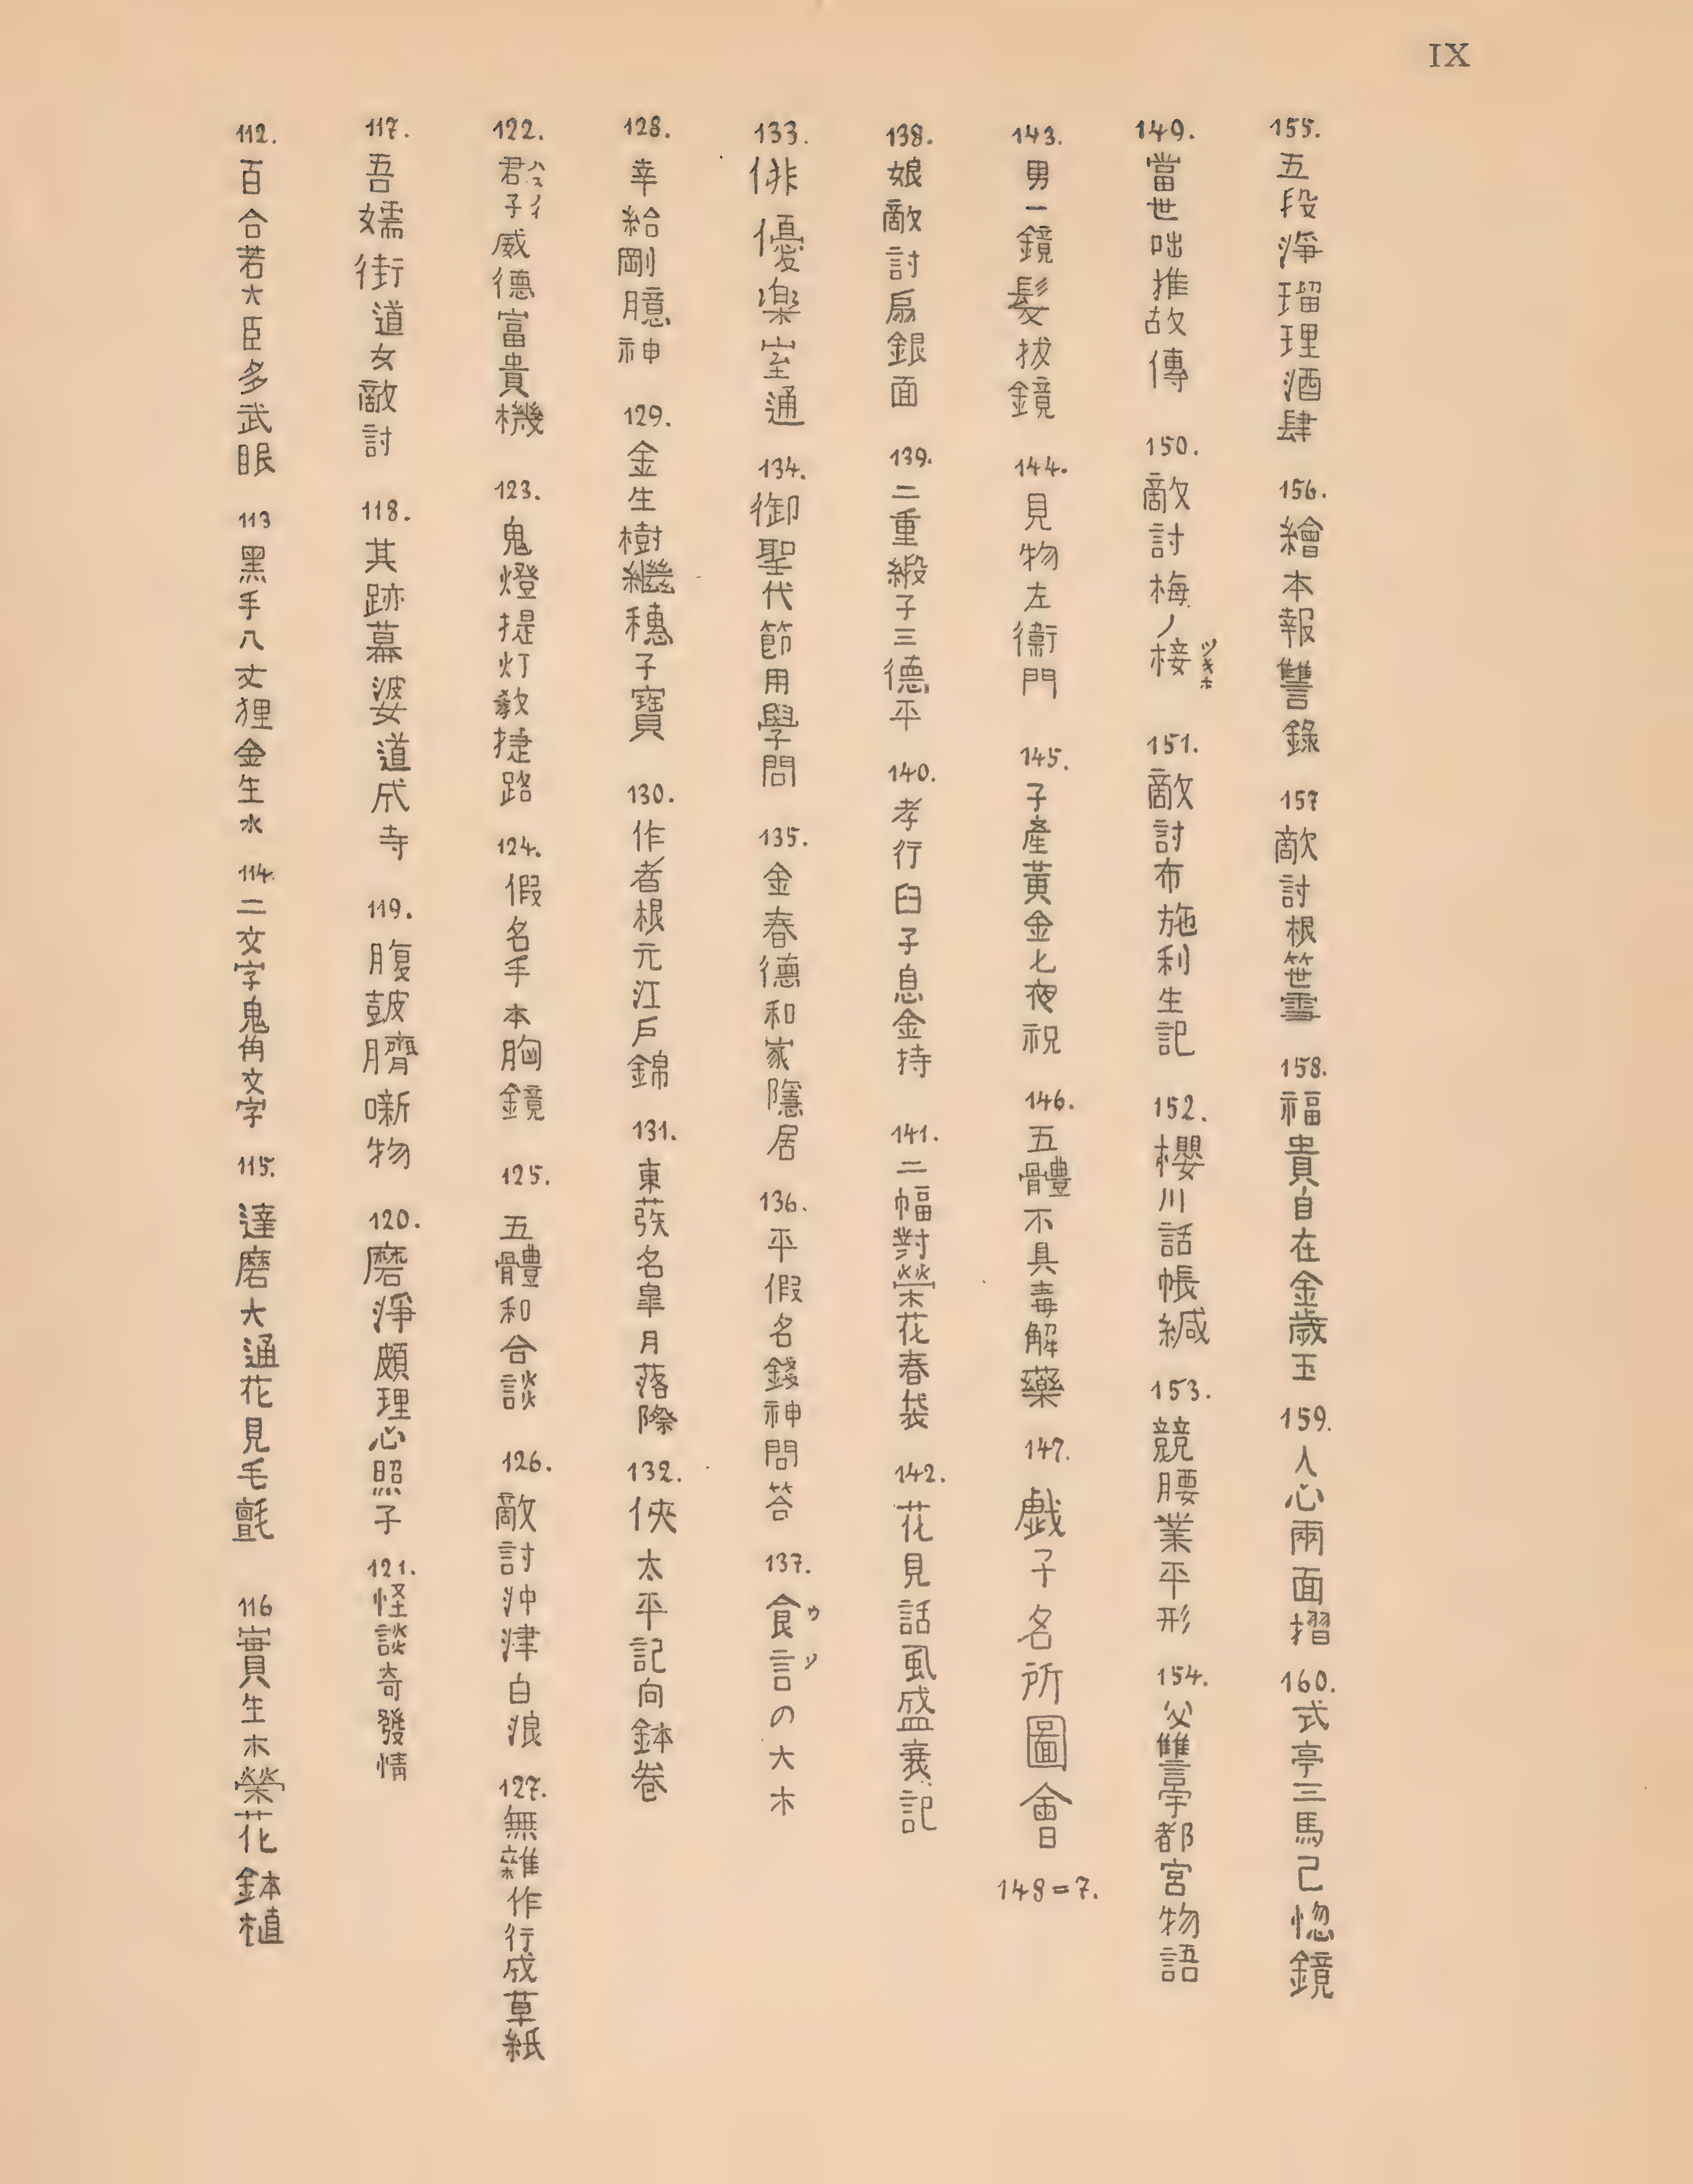 IX
112. 百合若大臣多武眼 113 黑手八丈狸金生水 114. 二文字鬼角文字 115. 達磨大通花見毛氈 116 實生木榮花鉢植
117. 吾嬬街道女敵討 118. 其跡幕婆道成寺 119. 腹皷臍噺物 120. 磨淨頗理心照子 121. 怪談奇發情
122. 君子威德富貴機 123. 鬼燈提灯教捷路 124. 假名手本胸鏡 125. 五體和合談 126. 敵討沖津白浪 127. 無雜作行成草紙
128. 幸給剛臆神 129. 金生樹繼穗子寶 130. 作者根元江戶錦 131. 東名皐月落際 132. 俠太平記向鉢卷
133. 俳優楽室通 134. 御聖代節用學問 135. 金春德和家隱居 136. 平假名錢神問答 137. 食言ウソの大木
138. 娘敵討扇銀面 139. 二重緞子三德平 140. 孝行臼子息金持 141. 二幅對榮花春袋 142. 花見話風盛衰記
143. 男一鏡髮拔鏡 144. 見物左衞門 145. 子產黃金七夜祝 146. 五體不具毒解藥 147. 戯子名所圖會 148=7.
149. 當世咄推故傳 150. 敵討梅ノ椄ツキホ 151. 敵討布施利生記 152. 櫻川話帳緘 153. 競腰業平形 154. 父讐宇都宮物語
155. 五段淨瑠理酒肆 156. 繪本報讐錄 157 敵討根笹雪 158. 福貴自在金歲玉 159. 人心兩面摺 160. 式亭三馬己惚鏡